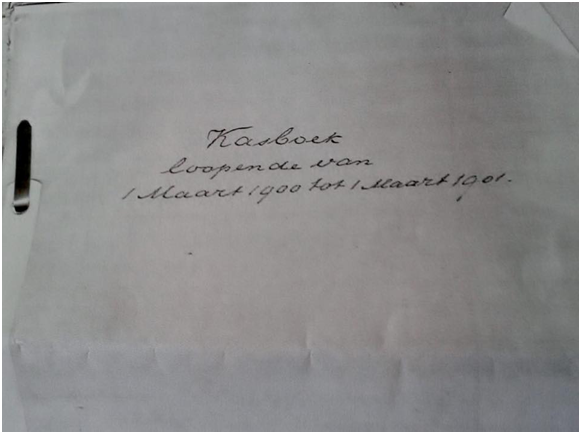 Kasboek
loopende van
1 Maart 1900 tot 1 Maart 1901.